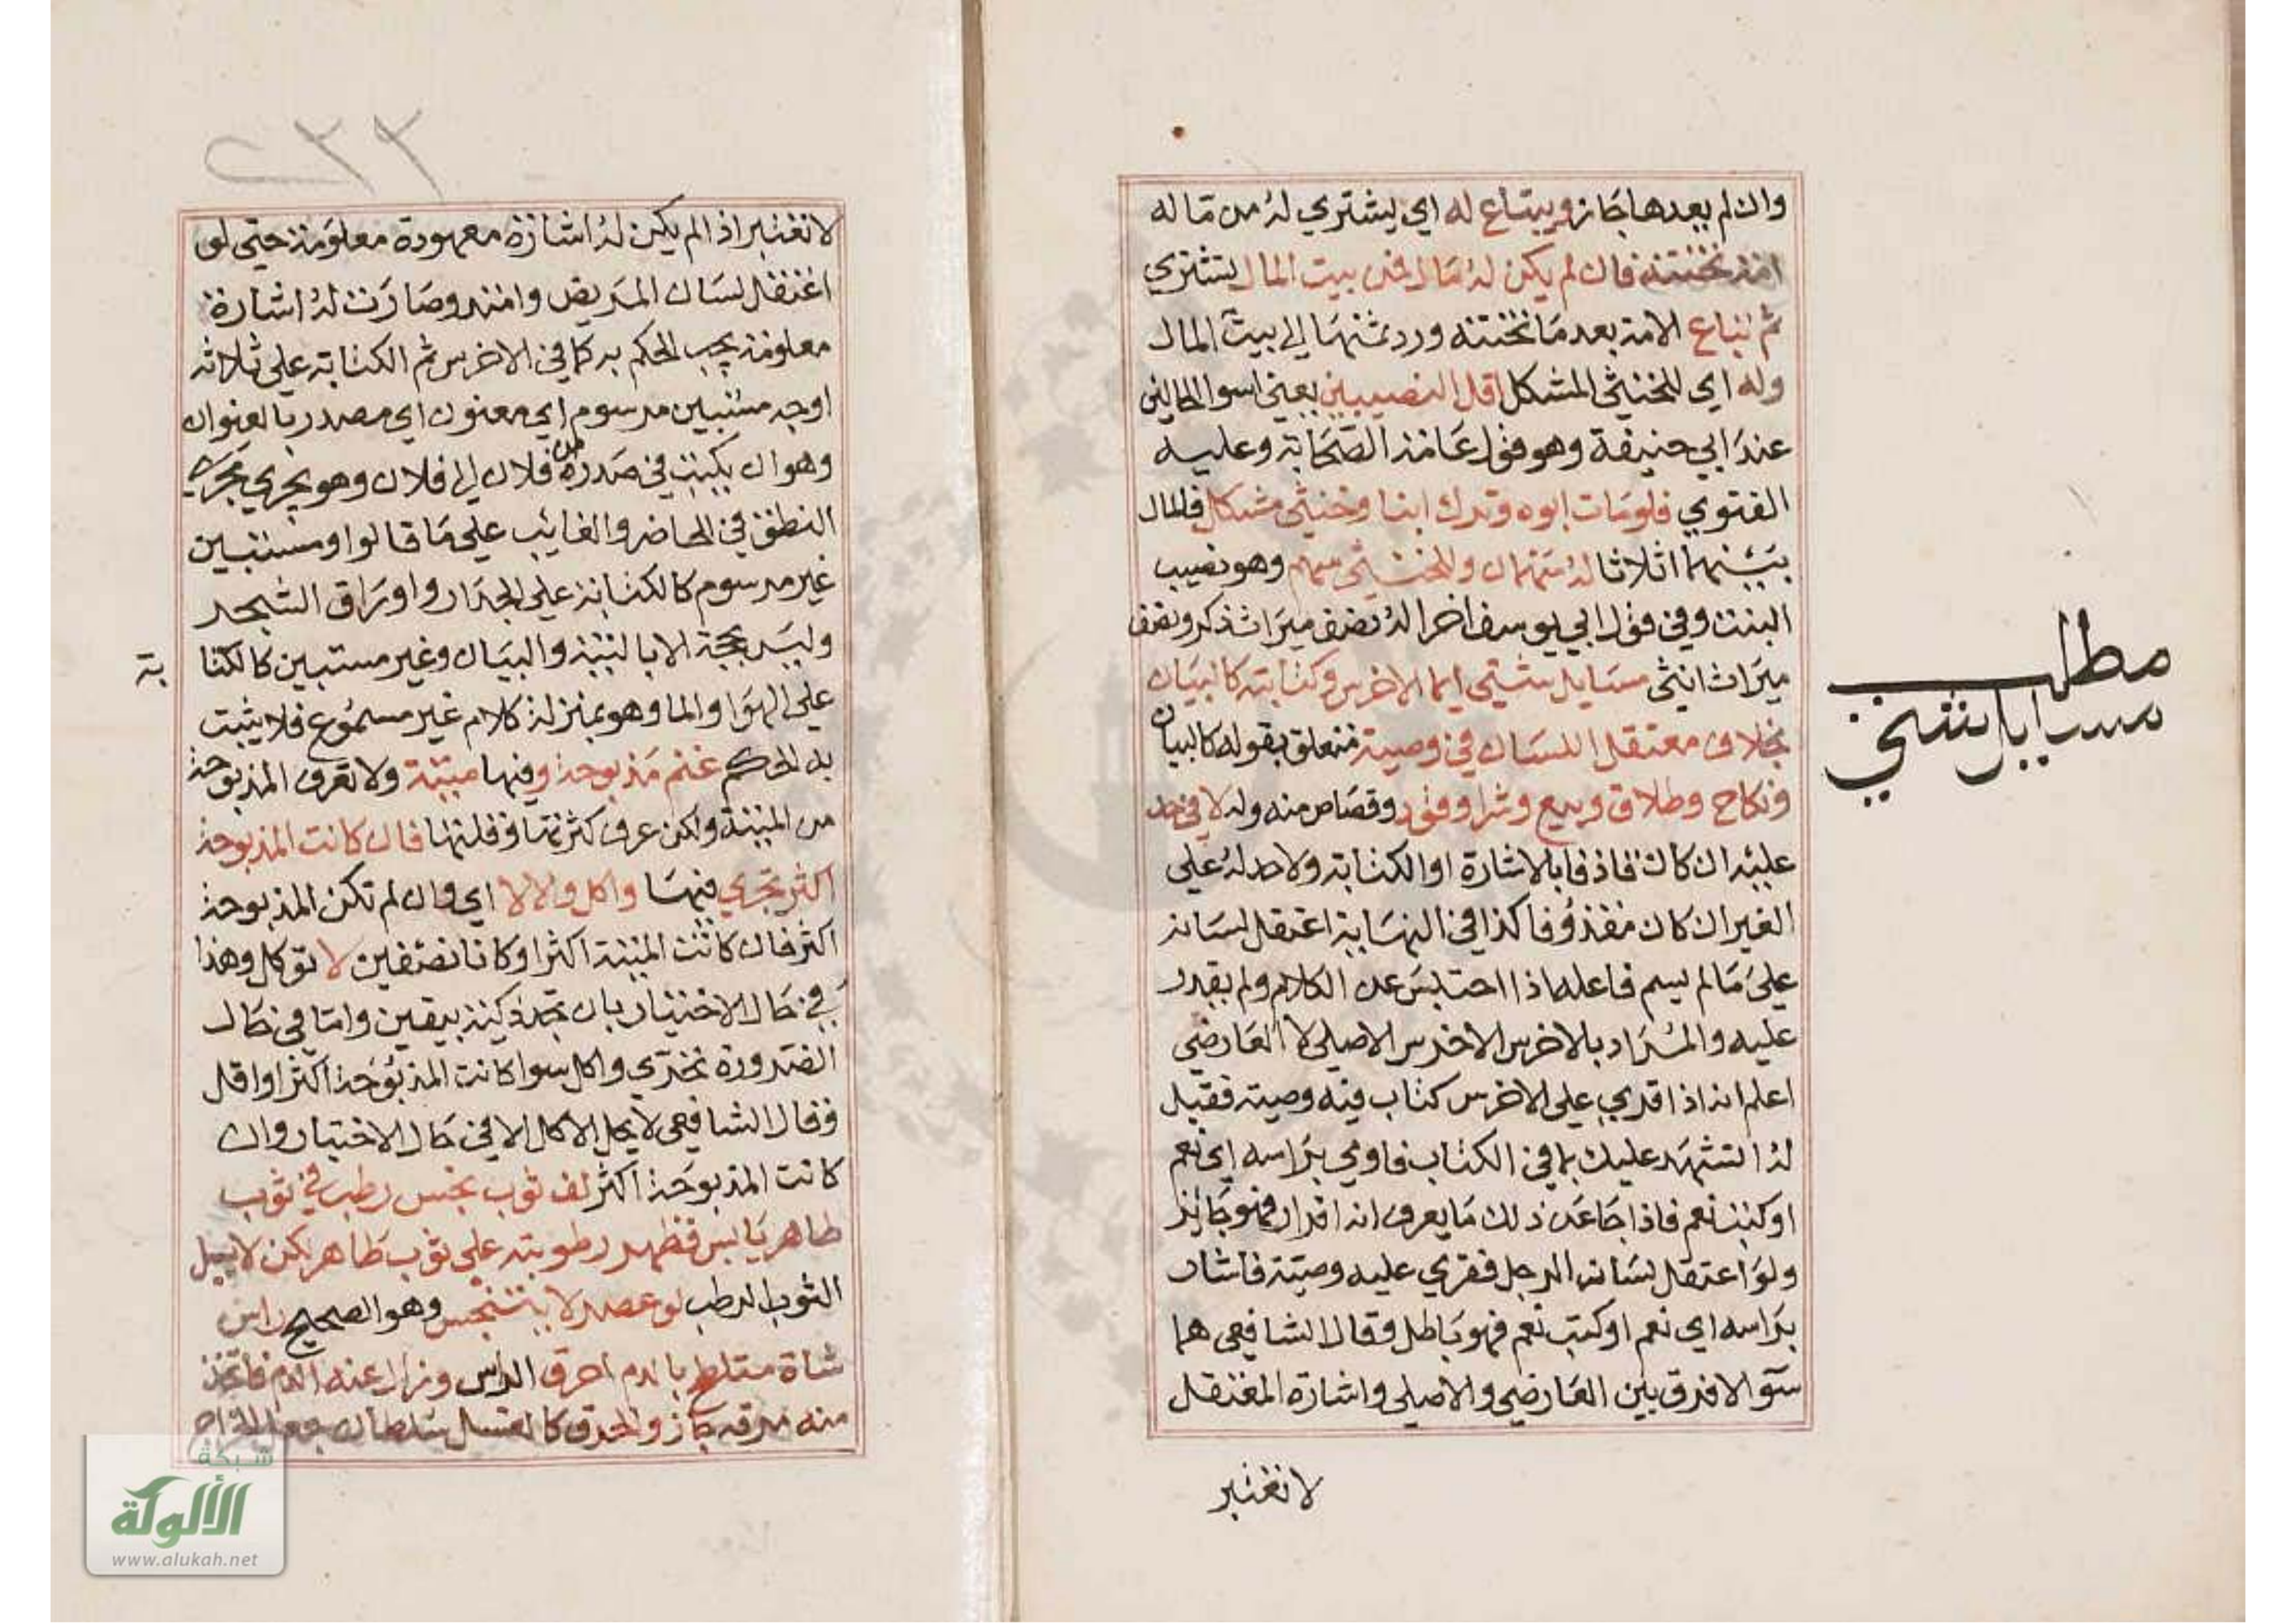 وان لم يعدها جاز ويبتاع له اي يشتري له من ماله
امة تختنه فان لم يكن له مال فمن بيت المال يشتري
ثم تباع الامة بعد ما تختنه ورد ثمنها الي بيت المال
وله اي للخنثي المشكل اقل النصيبين يعني اسوا الحالين
عند ابي حنيفة وهو قول عامة الصحابة وعليه
الفتوي فلو مات ابوه وترك ابنا وخنثي مشكل فالمال
بينهما اثلاثا له سهمان وللخنثي سهم وهو نصيب
البنت وفي قول ابي يوسف اخرا له نصف ميراث ذكر ونصف
ميراث انثي مسايل شتي ايما الاخرس وكتابته كالبيان
بخلاف معتقل اللسان في وصية متعلق بقوله كالبيان
ونكاح وطلاق وبيع وشرا وقود وقصاص منه وله لا في حد
عليه ان كان قاذفا بالاشارة او الكتابة ولا حد له علي
الغير ان كان مقذوفا كذا في النهاية اعتقل لسانه
علي ما لم يسم فاعله اذا احتبس عن الكلام ولم يقدر
عليه والمراد بالاخرس الاخرس الاصلي لا العارضي
اعلم انه اذا قري علي الاخرس كتاب فيه وصية فقيل
له انشهد عليك بما في الكتاب فاومي براسه اي نعم
او كتب نعم فاذا جا عن ذلك ما يعرف انه اقرار فهو جايز
ولو اعتقل لسانه الرجل فقري عليه وصية فاشار
براسه اي نعم او كتب نعم فهو باطل وقال الشافعي هما
سوآ لا فرق بين العارضي والاصلي واشارة المعتقل
لا تعتبر
مطلب
مسايل شتي
٢٣٢
لا تعتبر اذا لم يكن له اشارة معهودة معلومة حتي لو
اعتقل لسان المريض وامتد وصارت له اشارة
معلومة يجب الحكم به كما في الاخرس ثم الكتابة علي ثلاثة
اوجه مستبين مرسوم اي معنون اي مصدر بالعنوان
وهو ان يكتب في صدره من فلان الي فلان وهو يجري مجري
النطق في الحاضر والغايب علي ما قالوا ومستبين
غير مرسوم كالكتابة علي الجدار واوراق الشجر
وليس بحجة الا بالنية والبيان وغير مستبين كالكتا
بة
علي الهوا والما وهو بمنزلة كلام غير مسموع فلا يثبت
به الحكم غنم مذبوحة وفيها ميتة ولا تعرف المذبوحة
من الميتة ولكن عرف كثرتها وقلتها فان كانت المذبوحة
اكثر تحري فيها واكل والا لا اي وان لم تكن المذبوحة
اكثر فان كانت الميتة اكثر او كانا نصفين لا توكل وهذا
في حال الاختيار بان تجد ذكية بيقين واما في حال
الضرورة تحري واكل سوا كانت المذبوحة اكثر او اقل
وقال الشافعي لا يحل الاكل الا في حال الاختيار وان
كانت المذبوحة اكثر لف ثوب نجس رطب في ثوب
طاهر يابس فظهر رطوبته علي ثوب طاهر لكن لا يسيل
الثوب الرطب لو عصر لا يتنجس وهو الصحيح راس
شاة متلطخ بالدم احرق الراس وزال عنه الدم فاتخذ
منه مرقه جاز والحرق كالغسل سلطان جعل الخراج
شبكة
الألوكة
www.alukah.net